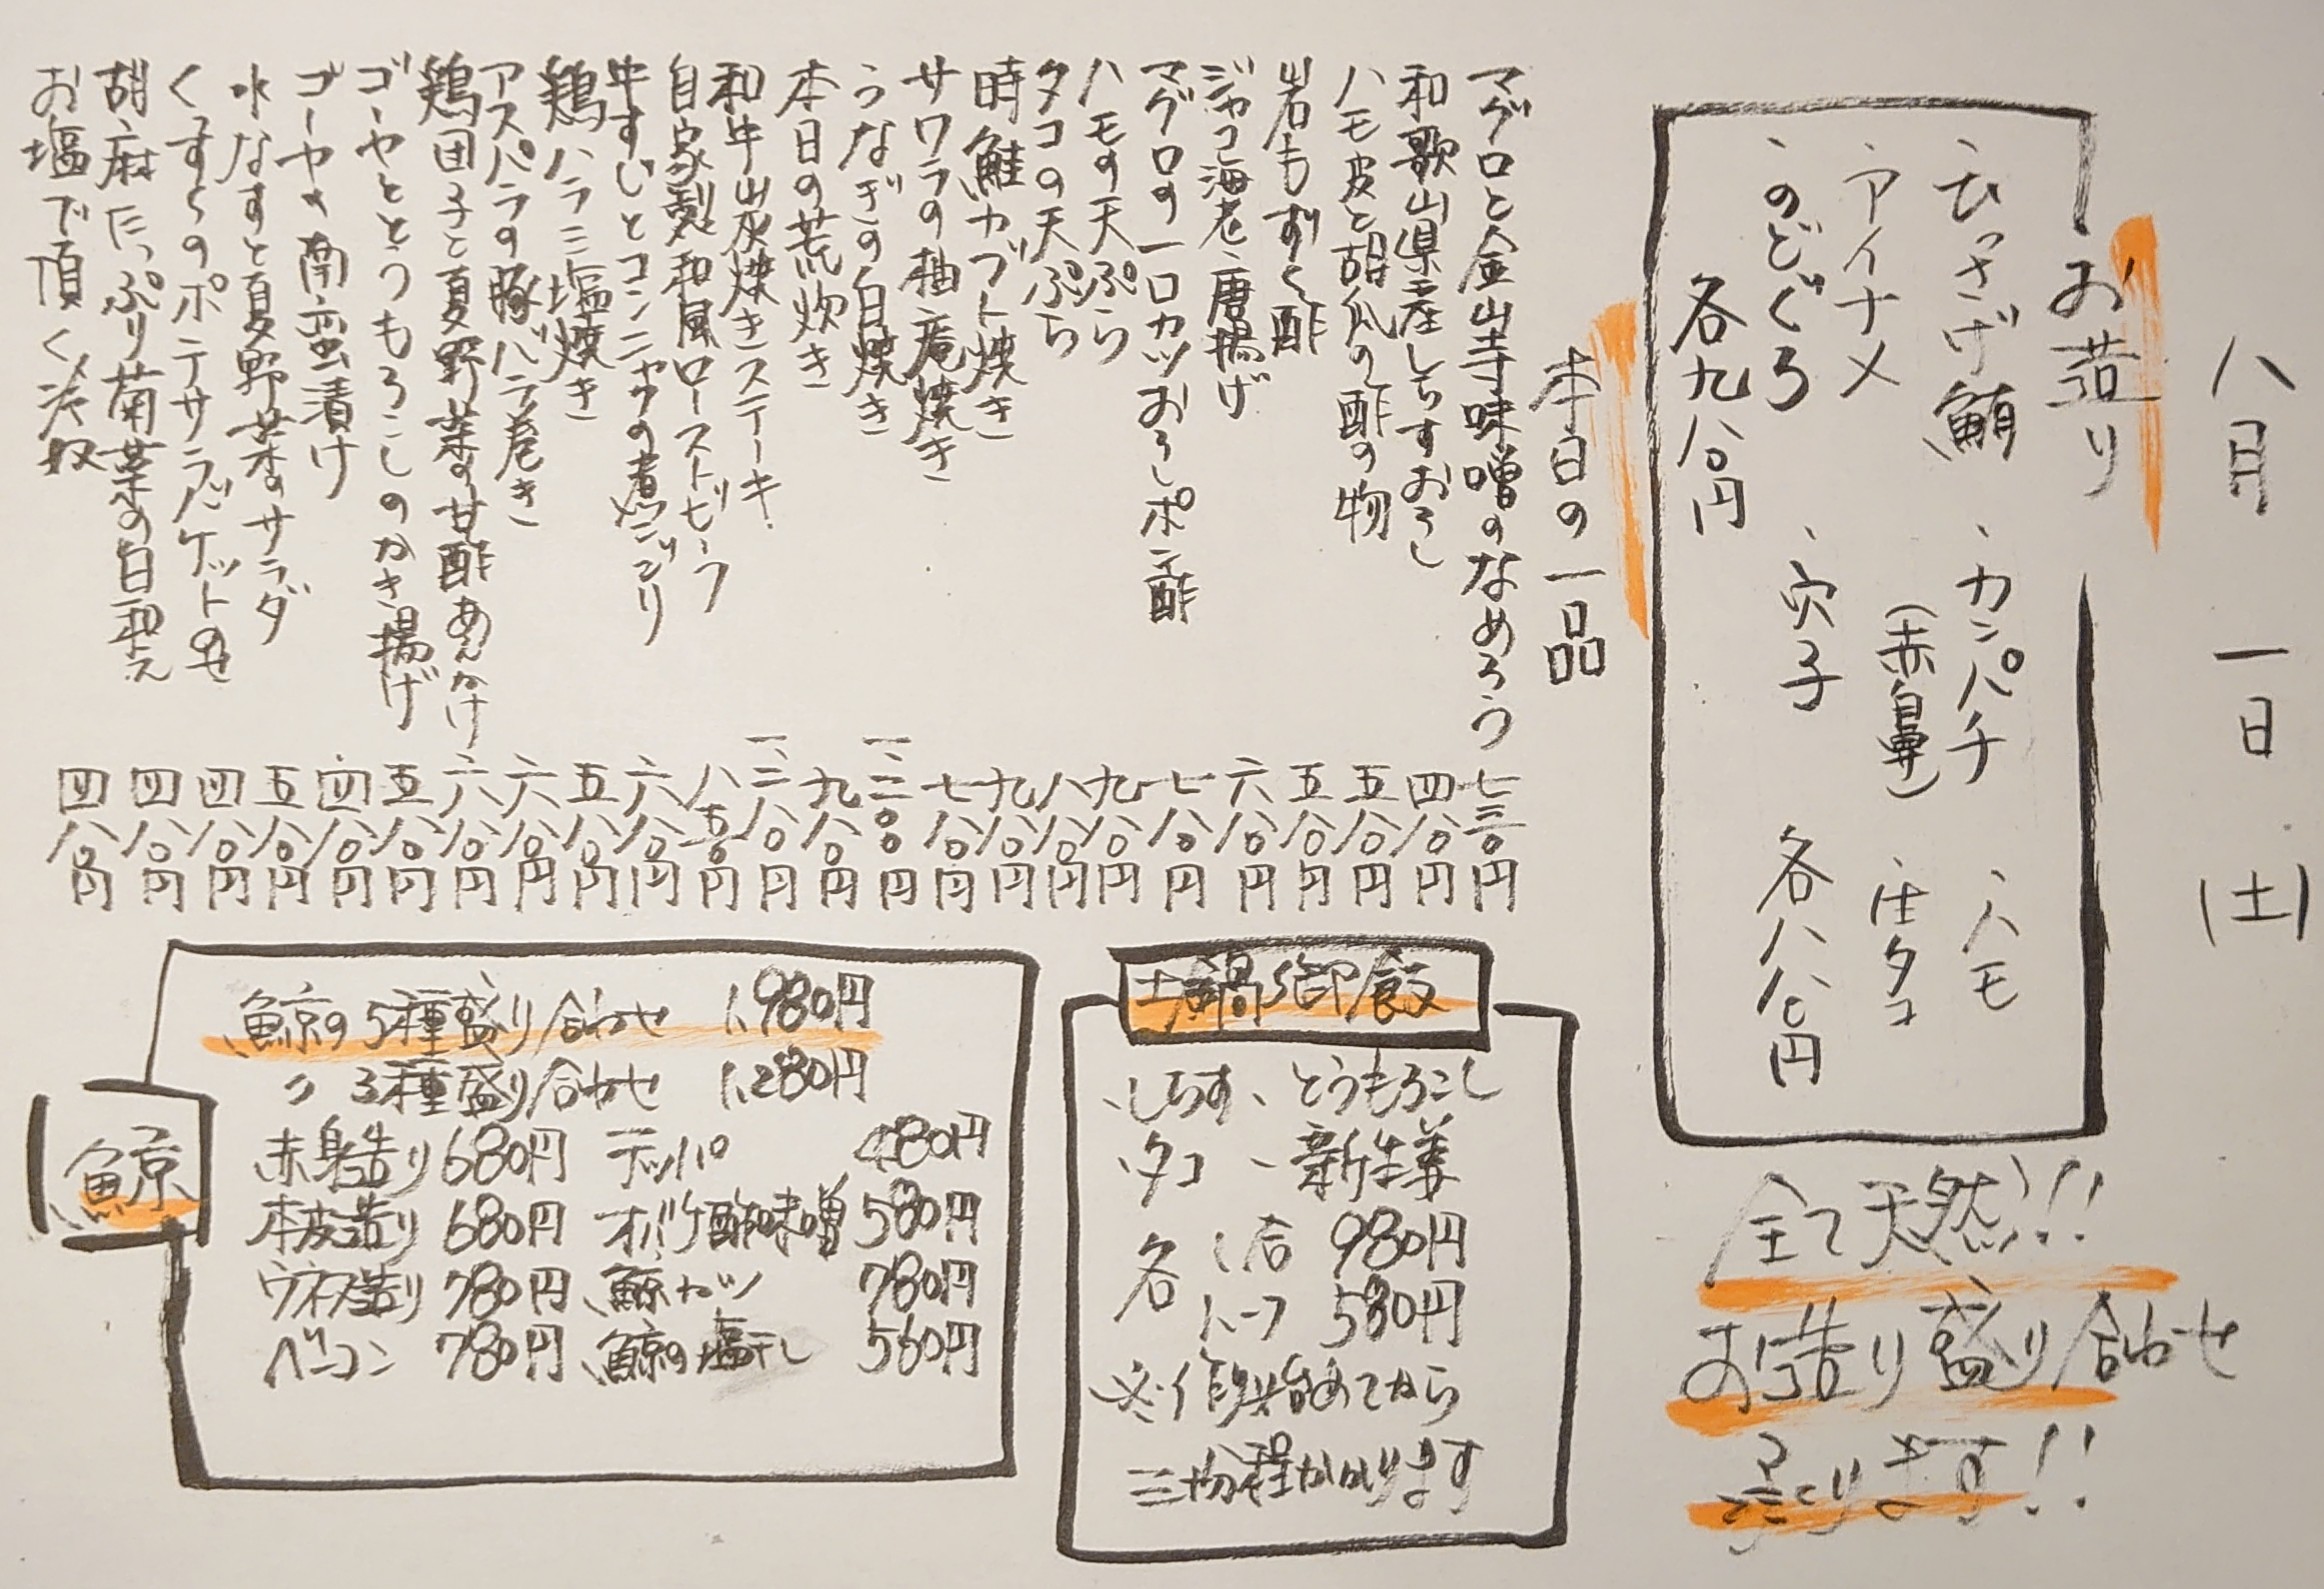 八月 一日 (土)
お造り
、ひっさげ鮪 、カンパチ 、ハモ
(赤鼻)
、アイナメ 、生タコ
、のどぐろ 、穴子
各九八〇円 各八八〇円
全て天然!!
お造り盛り合わせ
承ります!!
本日の一品
マグロと金山寺味噌のなめろう 七三〇円
和歌山県産しらすおろし 四八〇円
ハモ皮と胡瓜の酢の物 五八〇円
岩もずく酢 五八〇円
ジャコ海老唐揚げ 六八〇円
マグロの一口カツおろしポン酢 七八〇円
ハモの天ぷら 九八〇円
タコの天ぷら 八八〇円
時鮭カブト焼き 九八〇円
サワラの柚庵焼き 七八〇円
うなぎの白焼き 一、三〇〇円
本日の荒炊き 九八〇円
和牛炭焼きステーキ 一、二八〇円
自家製和風ローストビーフ 八五〇円
牛すじとコンニャクの煮こごり 六八〇円
鶏ハラミ塩焼き 五八〇円
アスパラの豚バラ巻き 六八〇円
鶏団子と夏野菜の甘酢あんかけ 六八〇円
ゴーヤととうもろこしのかき揚げ 五八〇円
ゴーヤの南蛮漬け 四八〇円
水なすと夏野菜のサラダ 五八〇円
くずし のポテサラバケットのせ 四八〇円
胡麻たっぷり菊菜の白和え 四八〇円
お塩で頂く冷奴 四八〇円
土鍋御飯
、しらす 、とうもろこし
、タコ 、新生姜
各 1合 980円
ハーフ 580円
※作り始めてから
三十分程かかります
鯨
鯨の5種盛り合わせ 1,980円
〃 3種盛り合わせ 1,280円
赤身造り 680円 テッパ 480円
本皮造り 680円 オバケ酢味噌 580円
ウネス造り 780円 鯨カツ 780円
ベーコン 780円 鯨の塩干し 560円